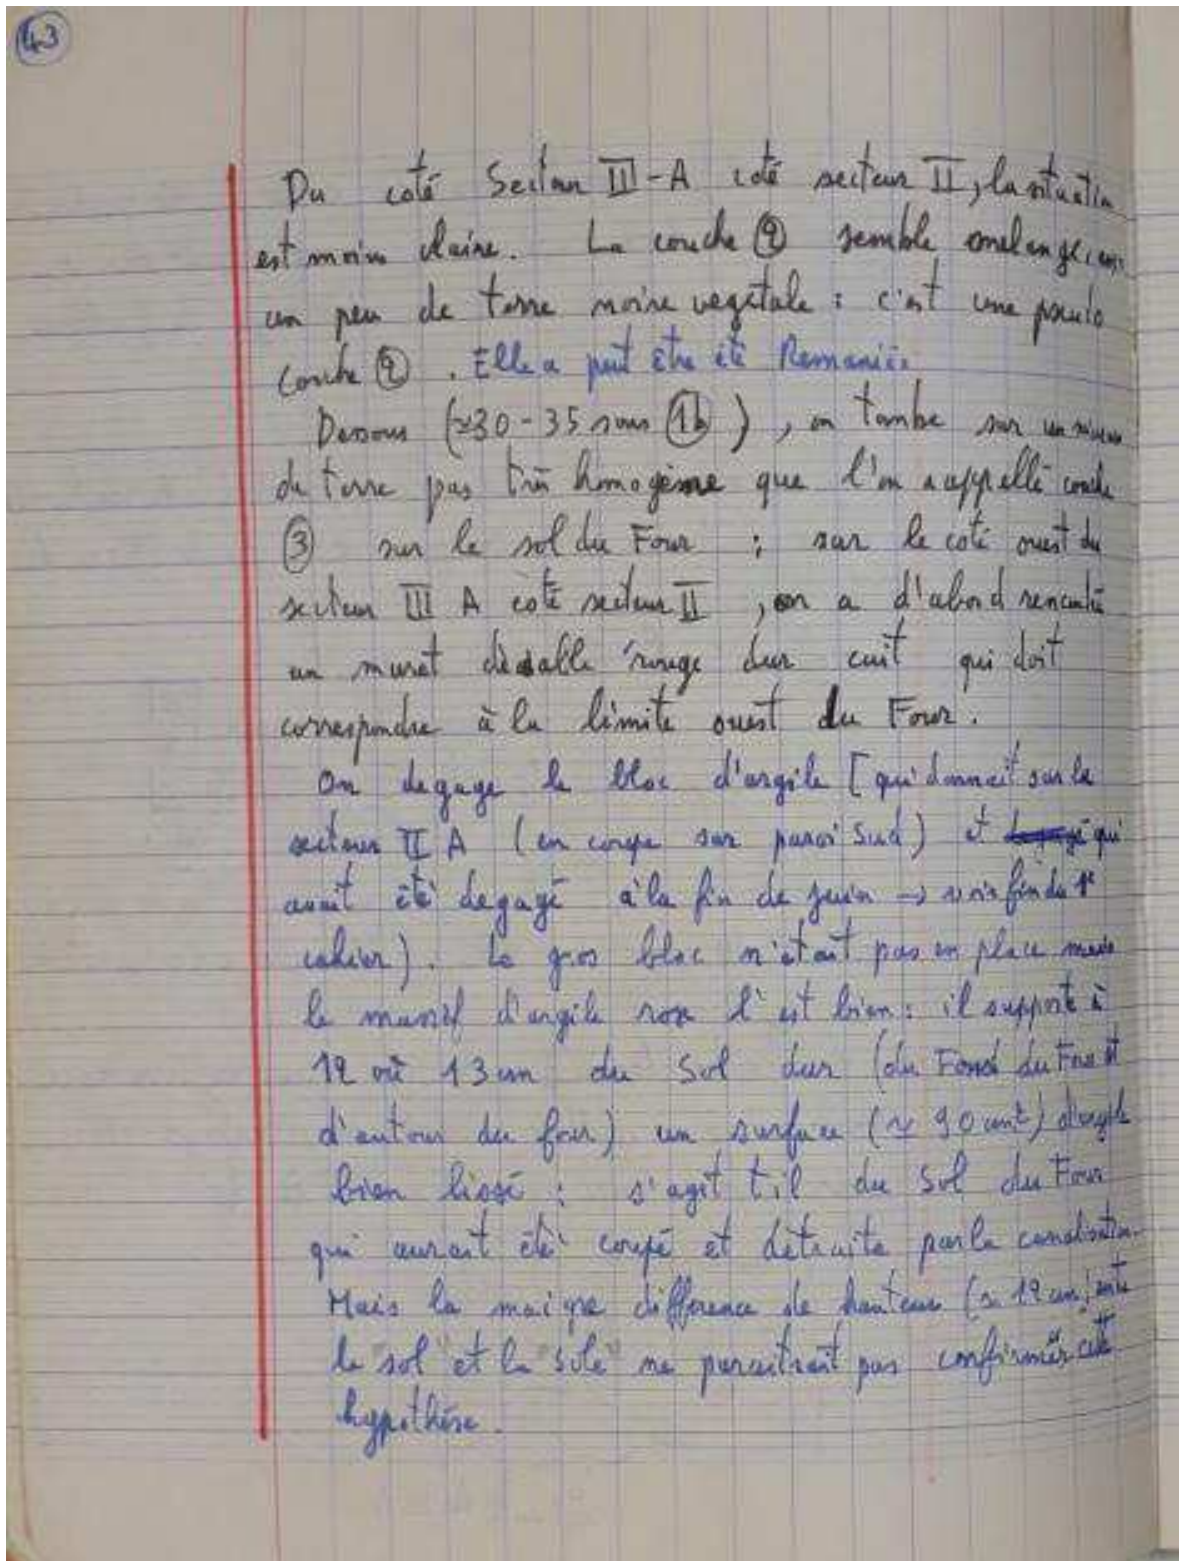 43
Du coté Secteur III-A coté secteur II, la situation
est moins claire. La couche ② semble melangé, avec
un peu de terre noire vegetale : c'est une pseudo
couche ②. Elle a peut être été Remaniée
Dessous (≈30-35 sous ①b), on tombe sur un niveau
de terre pas très homogène que l'on a appellé couche
③ sur le sol du Four ; sur le coté ouest du
secteur III A coté secteur II, on a d'abord rencontré
un muret de sable rouge dur cuit qui doit
correspondre à la limite ouest du Four.
On degage le bloc d'argile [qui donnait sur le
secteur II A (en coupe sur paroi Sud) et qui
avait été degagé à la fin de juin → voir fin du 1er
cahier). Le gros bloc n'était pas en place mais
le massif d'argile rose l'est bien : il supporte à
12 où 13 cm du Sol dur (du Fond du Four et
d'autour du four) un surface (≈ 90 cm²) d'argile
bien lissé : s'agit t-il du Sol du Four
qui aurait été coupé et détruite par la canalisation.
Mais la maigre différence de hauteur (≈ 12 cm) entre
le sol et la "sole" ne paraitrait pas confirmer cette
hypothèse.